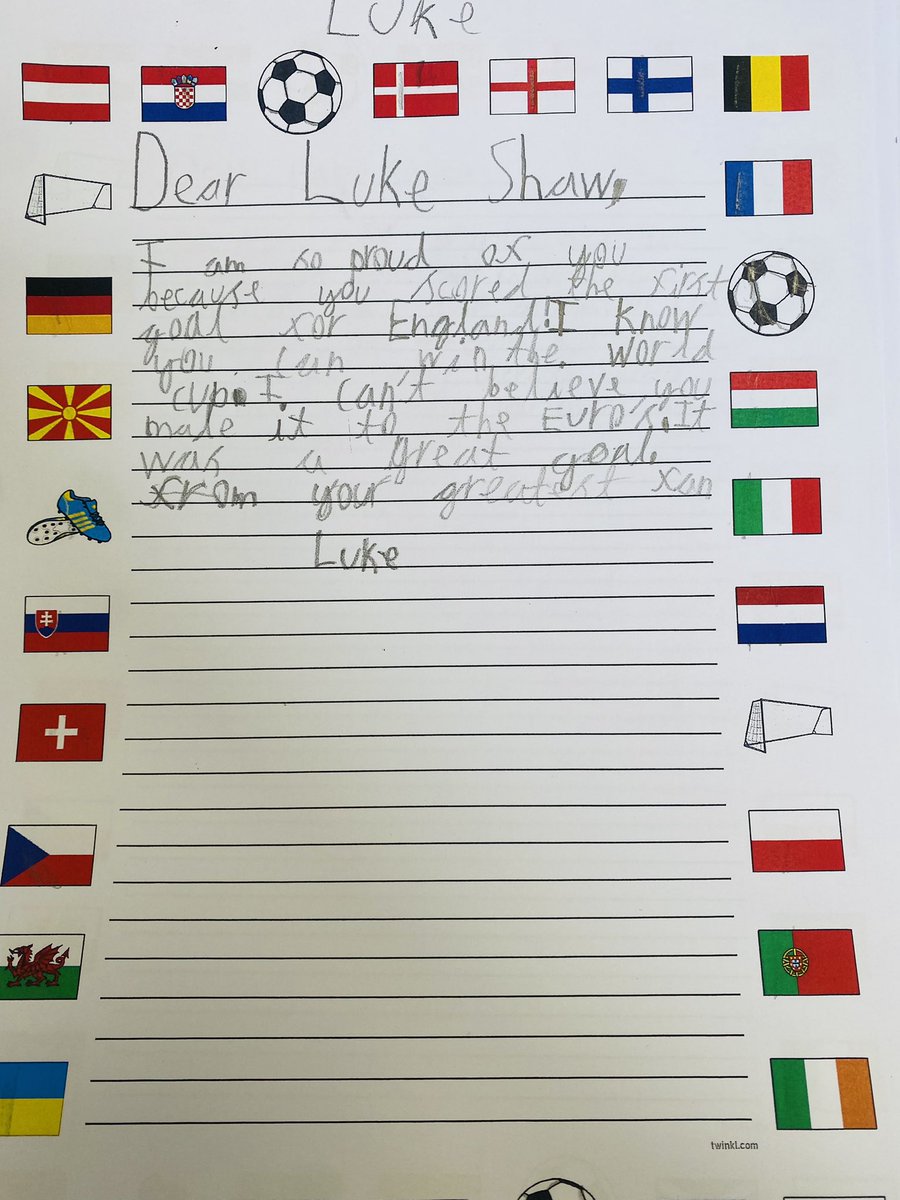 Luke
Dear Luke Shaw,
I am so proud of you
because you scored the first
goal for England! I know
you can win the world
cup. I can't believe you
made it to the Euro's. It
was a great goal.
from your greatest fan
Luke
twinkl.com